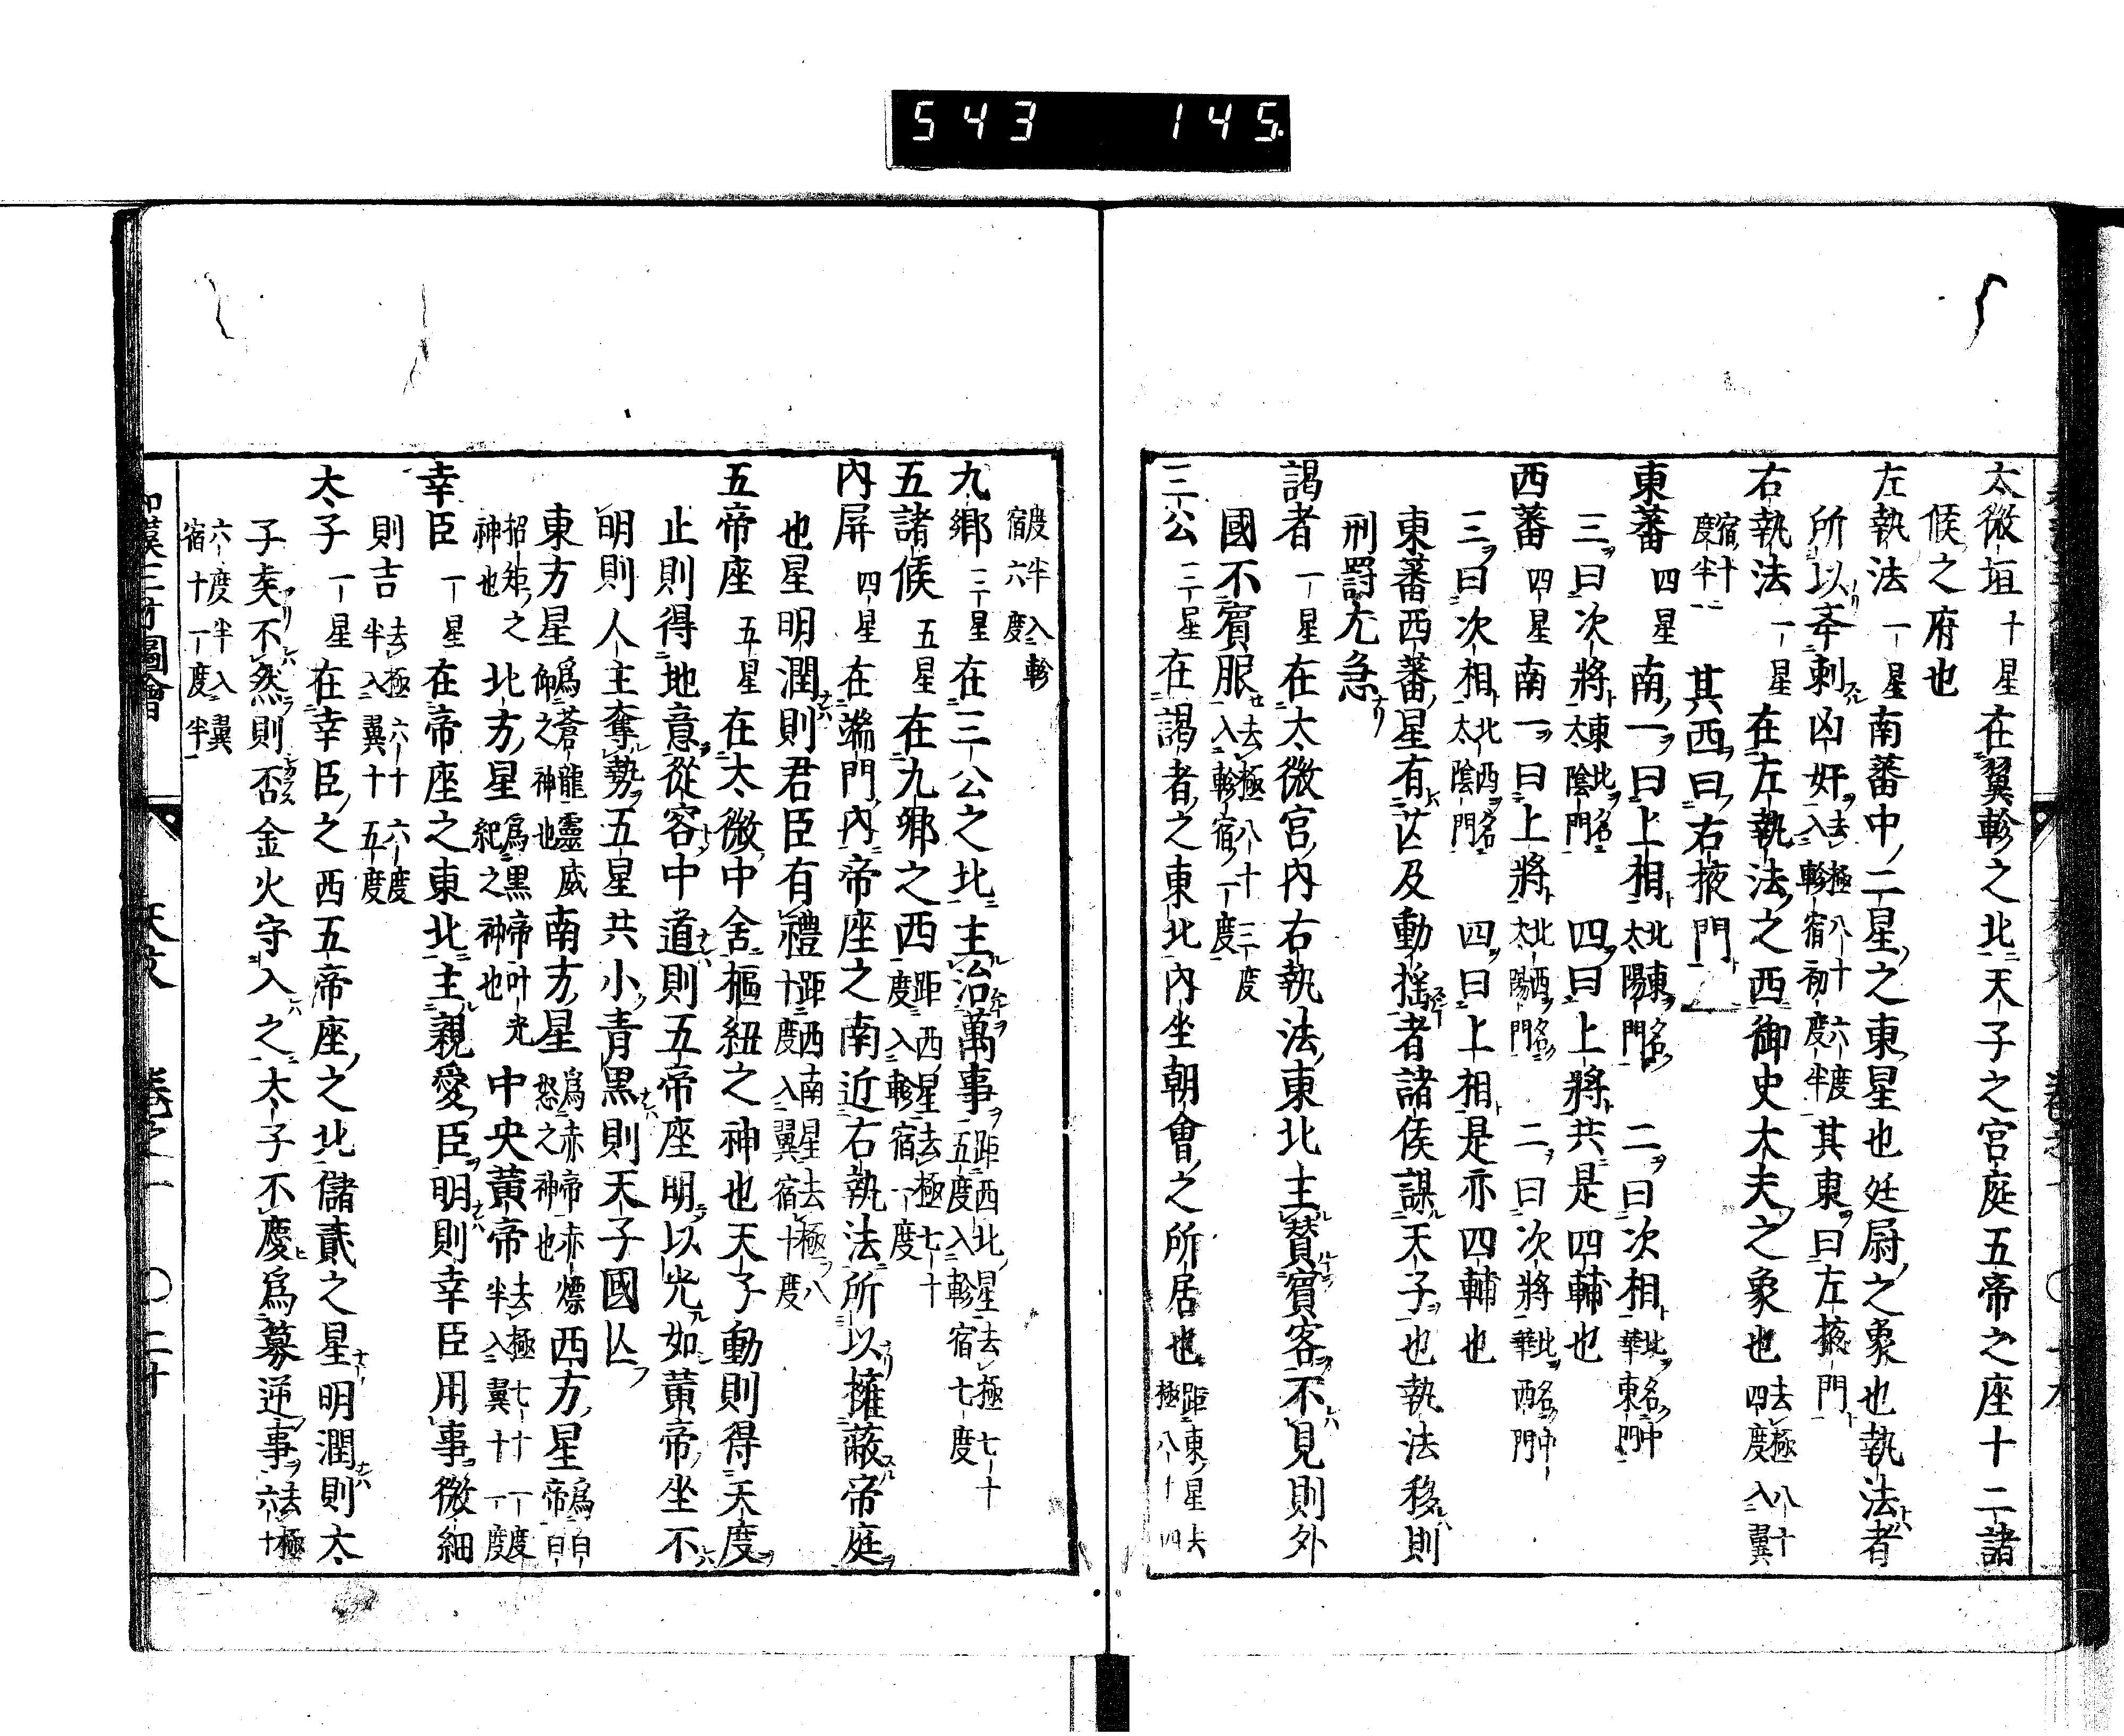 543 145
太微垣 十星 在翼軫之北天子之宮庭五帝之座十二諸
侯之府也
左執法 一星 南蕃中二星之東星也廷尉之象也執法者
所以牽刺凶奸 去極八十六度入軫宿初度半 其東曰左掖門
右執法 一星 在左執法之西御史大夫之象也 去極八十四度入翼
宿十度半 其西曰右掖門
東蕃 四星 南一曰上相 北東名太陽門 二曰次相 北名中華東門
三曰次將 東北名太陰門 四曰上將共是四輔也
西蕃 四星 南一曰上將 北西名太陽門 二曰次將 北名中華西門
三曰次相 北西名太陰門 四曰上相是亦四輔也
東蕃西蕃星有芒及動搖者諸侯謀天子也執法移則
刑罸尤急
謁者 一星 在太微宮內右執法東北主賛賓客不見則外
國不賓服 去極八十三度入軫宿一度
三公 三星 在謁者之東北內坐朝會之所居也 距東星去極八十四
度半入軫宿六度
九鄉 三星 在三公之北主治萬事 距西北星去極七十五度入軫宿七度
五諸候 五星 在九鄉之西 距西星去極七十度入軫宿一度
內屏 四星 在端門內帝座之南近右執法所以擁蔽帝庭
也星明潤則君臣有禮 距西南星去極八十度入翼宿十度
五帝座 五星 在太微中舍樞紐之神也天子動則得天度
止則得地意從容中道則五帝座明以光如黄帝坐不
明則人主奪勢五星共小青黒則天子國亾
東方星 爲蒼龍靈威仰之神也 南方星 爲赤帝赤熛怒之神也 西方星 爲白帝白
招矩之神也 北方星 爲黒帝叶光紀之神也 中央黄帝 去極七十一度半入翼十一度
幸臣 一星 在帝座之東北主親愛臣明則幸臣用事微細
則吉 去極六十六度半入翼十五度
太子 一星 在幸臣之西五帝座之北儲貳之星明潤則太
子矣不然則否金火守入之太子不慶爲篡逆事 去極六十
六度半入翼宿十一度半
和漢三才圖會 天文 卷之一 〇二十